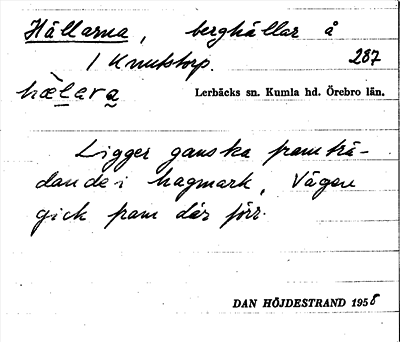 Hällarna, berghällar å
1 Knutstorp. 287
hælara Lerbäcks sn. Kumla hd. Örebro län.
Ligger ganska framträ-
dande i hagmark, Vägen
gick fram där förr.
DAN HÖJDESTRAND 1958